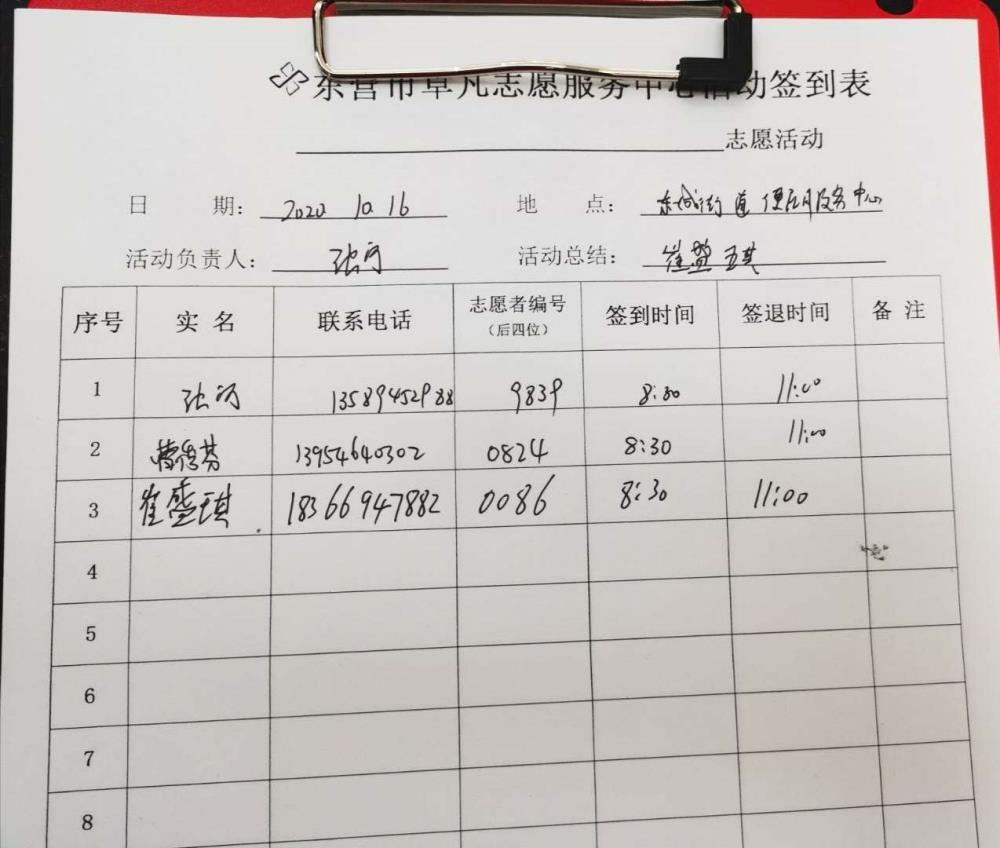 东营市草凡志愿服务中心活动签到表
志愿活动
日 期： 2020 10 16 地 点： 东城街道便民服务中心
活动负责人： 张 活动总结： 崔盛琪
序号 实 名 联系电话 志愿者编号（后四位） 签到时间 签退时间 备 注
1 张 13589452988 9839 8:30 11:00
2 13954640302 0824 8:30 11:00
3 崔盛琪 18366947882 0086 8:30 11:00
4
5
6
7
8